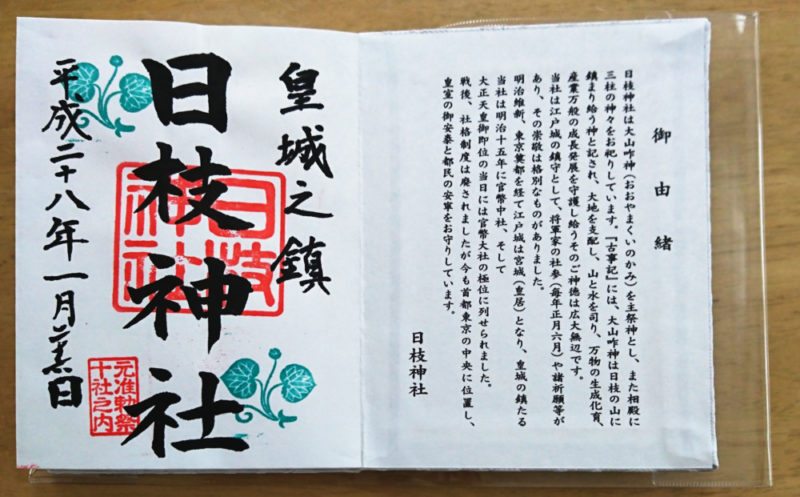 御由緒
日枝神社は大山咋神(おおやまくいのかみ)を主祭神とし、また相殿に
三柱の神々をお祀りしています。『古事記』には、大山咋神は日枝の山に
鎮まり給う神と記され、大地を支配し、山と水を司り、万物の生成化育、
産業万般の成長発展を守護し給うそのご神徳は広大無辺です。
当社は江戸城の鎮守として、将軍家の社参(毎年正月六月)や諸祈願等が
あり、その崇敬は格別なものがありました。
明治維新、東京奠都を経て江戸城は宮城(皇居)となり、皇城の鎮たる
当社は明治十五年に官幣中社、そして
大正天皇御即位の当日には官幣大社の極位に列せられました。
戦後、社格制度は廃されましたが今も首都東京の中央に位置し、
皇室の御安泰と都民の安寧をお守りしています。
日枝神社
皇城之鎮
日枝神社
日枝
神社
平成二十八年一月日
元准勅祭
十社之内